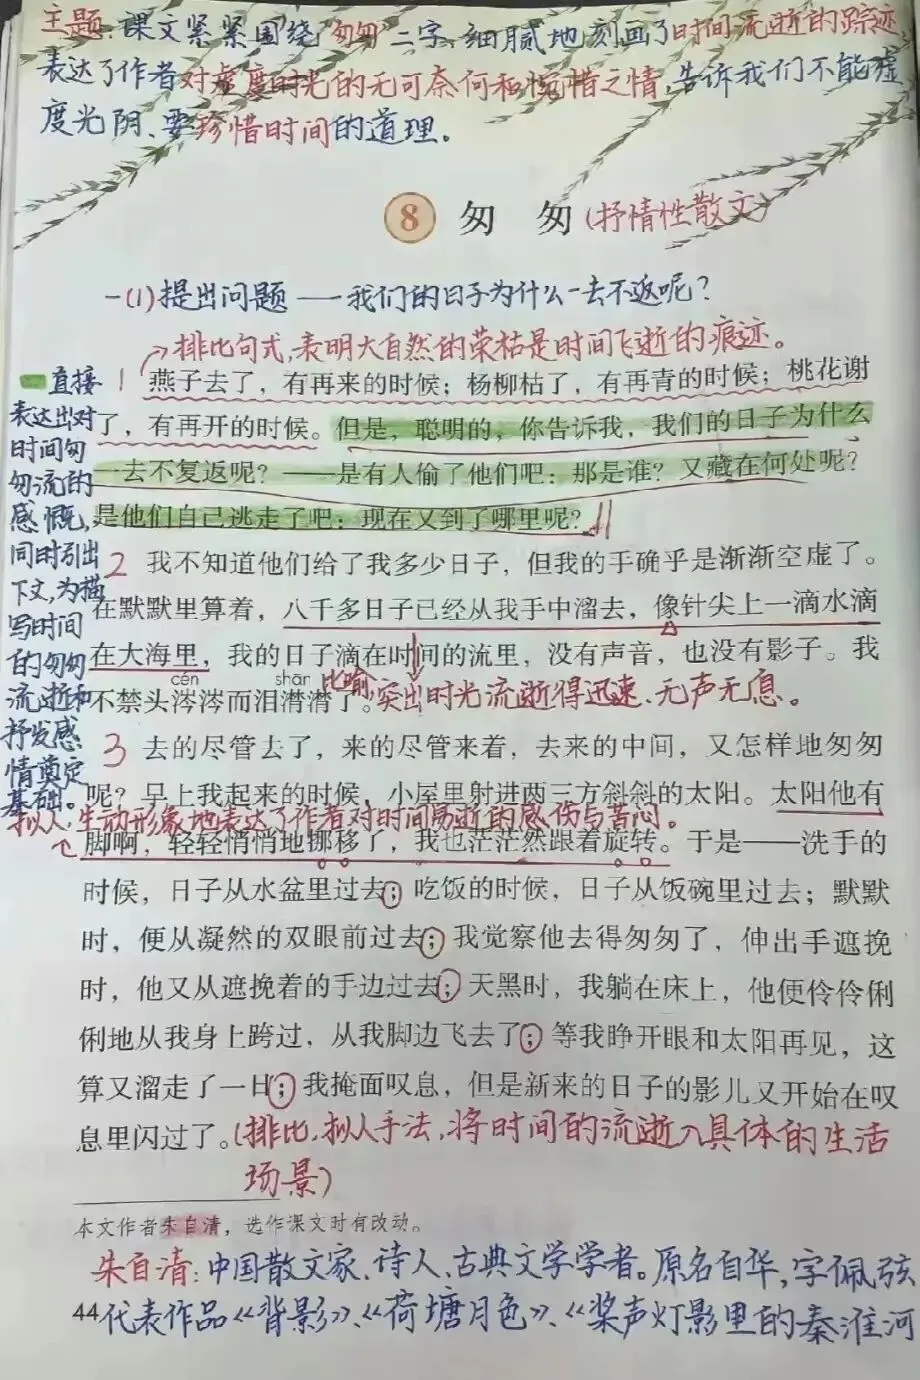 主题:课文紧紧围绕“匆匆”二字、细腻地刻画了时间流逝的踪迹
表达了作者对虚度时光的无可奈何和惋惜之情,告诉我们不能虚
度光阴、要珍惜时间的道理。
8 匆 匆(抒情性散文)
一(1)提出问题——我们的日子为什么一去不返呢?
排比句式,表明大自然的荣枯是时间飞逝的痕迹。
直接
表达出对
时间匆
匆流的
感慨,
同时引出
下文,为描
写时间
的匆匆
流逝和
抒发感
情奠定
基础。
1 燕子去了,有再来的时候;杨柳枯了,有再青的时候;桃花谢
了,有再开的时候。但是,聪明的,你告诉我,我们的日子为什么
一去不复返呢?——是有人偷了他们吧:那是谁?又藏在何处呢?
是他们自己逃走了吧:现在又到了哪里呢?
2 我不知道他们给了我多少日子,但我的手确乎是渐渐空虚了。
在默默里算着,八千多日子已经从我手中溜去,像针尖上一滴水滴
在大海里,我的日子滴在时间的流里,没有声音,也没有影子。我
cén shān
不禁头涔涔而泪潸潸了。
比喻,突出时光流逝得迅速、无声无息。
3 去的尽管去了,来的尽管来着,去来的中间,又怎样地匆匆
呢?早上我起来的时候,小屋里射进两三方斜斜的太阳。太阳他有
拟人,生动形象地表达了作者对时间易逝的感伤与苦闷。
脚啊,轻轻悄悄地挪移了,我也茫茫然跟着旋转。于是——洗手的
时候,日子从水盆里过去;吃饭的时候,日子从饭碗里过去;默默
时,便从凝然的双眼前过去;我觉察他去得匆匆了,伸出手遮挽
时,他又从遮挽着的手边过去;天黑时,我躺在床上,他便伶伶俐
俐地从我身上跨过,从我脚边飞去了;等我睁开眼和太阳再见,这
算又溜走了一日;我掩面叹息,但是新来的日子的影儿又开始在叹
息里闪过了。(排比,拟人手法,将时间的流逝入具体的生活
场景)
本文作者朱自清,选作课文时有改动。
朱自清:中国散文家、诗人、古典文学学者。原名自华,字佩弦
44 代表作品《背影》、《荷塘月色》、《桨声灯影里的秦淮河